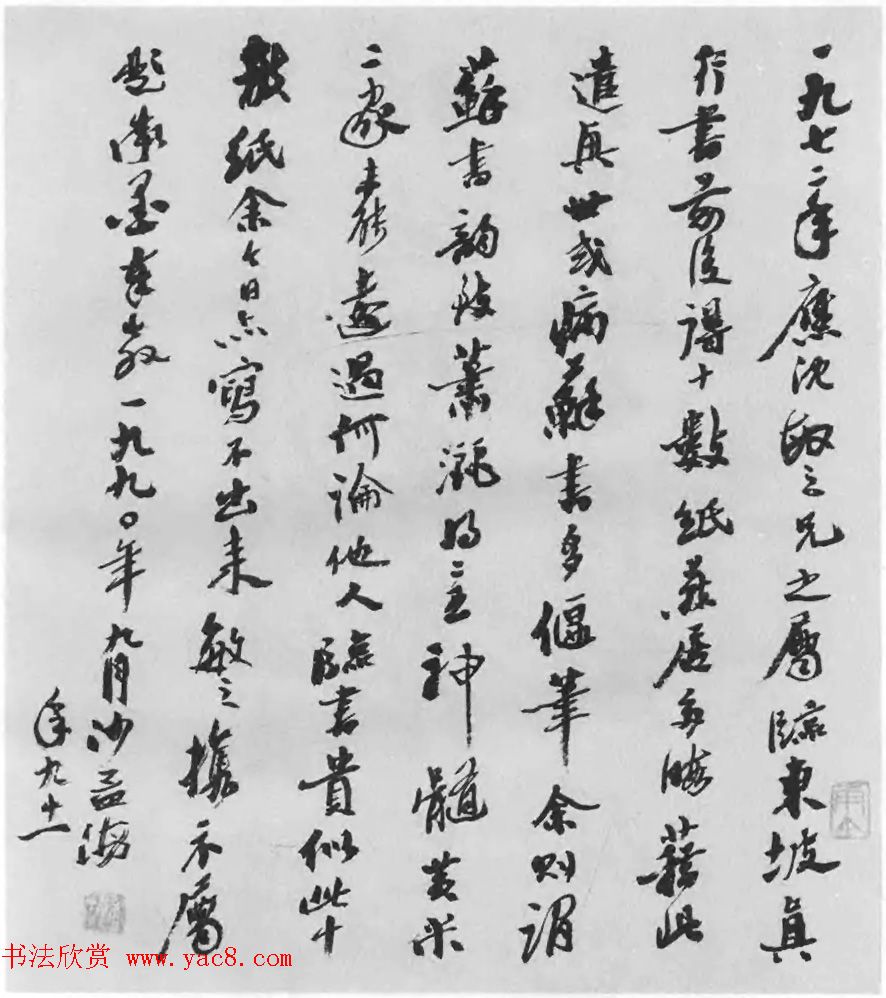 一九七二年應沈敏之兄之屬臨東坡真
行書前後得十數紙蒸居多晦藉此
遣興世或病蘇書多偃筆余則謂
蘇書韻致蕭灑得之神髓黃米
二家未能遠過何論他人臨書貴似此十
數紙余今日亦寫不出來敏之攜示屬
題漱墨奉教一九九〇年九月沙孟海
年九十一
书法欣赏 www.yac8.com